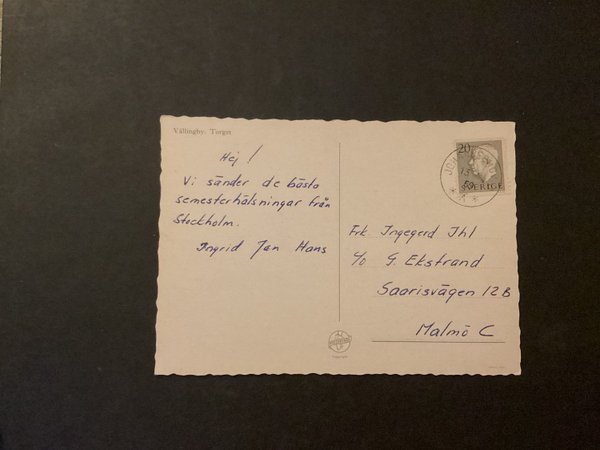 Vällingby. Torget
Hej!
Vi sänder de bästa
semesterhälsningar från
Stockholm.
Ingrid Jan Hans
20
SVERIGE
Frk Ingegerd Ihl
c/o G. Ekstrand
Saarisvägen 12 B
Malmö C